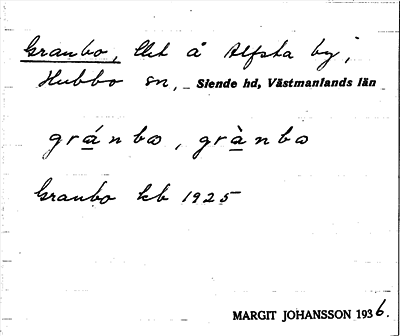 Granbo, lht å Alfsta by,
Hubbo sn, Siende hd, Västmanlands län
gránbω, grànbω
Granbo kb 1925
MARGIT JOHANSSON 1936.